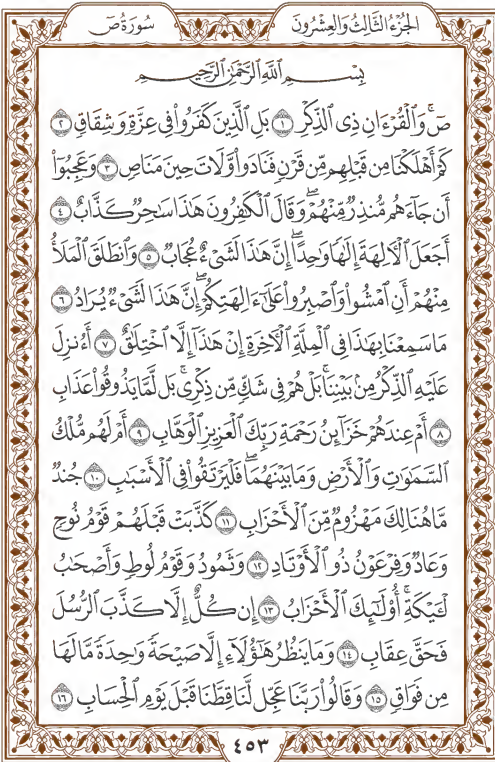 الجُزْءُ الثَّالِثُ وَالعِشْرُونَ سُورَةُ صٓ
بِسْمِ ٱللَّهِ ٱلرَّحْمَٰنِ ٱلرَّحِيمِ
صٓۚ وَٱلْقُرْءَانِ ذِى ٱلذِّكْرِ ١ بَلِ ٱلَّذِينَ كَفَرُوا۟ فِى عِزَّةٍ وَشِقَاقٍ ٢
كَمْ أَهْلَكْنَا مِن قَبْلِهِم مِّن قَرْنٍ فَنَادَوا۟ وَّلَاتَ حِينَ مَنَاصٍ ٣ وَعَجِبُوٓا۟
أَن جَآءَهُم مُّنذِرٌ مِّنْهُمْۖ وَقَالَ ٱلْكَٰفِرُونَ هَٰذَا سَٰحِرٌ كَذَّابٌ ٤
أَجَعَلَ ٱلْءَالِهَةَ إِلَٰهًا وَٰحِدًاۖ إِنَّ هَٰذَا لَشَىْءٌ عُجَابٌ ٥ وَٱنطَلَقَ ٱلْمَلَأُ
مِنْهُمْ أَنِ ٱمْشُوا۟ وَٱصْبِرُوا۟ عَلَىٰٓ ءَالِهَتِكُمْۖ إِنَّ هَٰذَا لَشَىْءٌ يُرَادُ ٦
مَا سَمِعْنَا بِهَٰذَا فِى ٱلْمِلَّةِ ٱلْءَاخِرَةِ إِنْ هَٰذَآ إِلَّا ٱخْتِلَٰقٌ ٧ أَءُنزِلَ
عَلَيْهِ ٱلذِّكْرُ مِنۢ بَيْنِنَاۚ بَلْ هُمْ فِى شَكٍّ مِّن ذِكْرِىۚ بَل لَّمَّا يَذُوقُوا۟ عَذَابِ
٨ أَمْ عِندَهُمْ خَزَآئِنُ رَحْمَةِ رَبِّكَ ٱلْعَزِيزِ ٱلْوَهَّابِ ٩ أَمْ لَهُم مُّلْكُ
ٱلسَّمَٰوَٰتِ وَٱلْأَرْضِ وَمَا بَيْنَهُمَاۖ فَلْيَرْتَقُوا۟ فِى ٱلْأَسْبَٰبِ ١٠ جُندٌ
مَّا هُنَالِكَ مَهْزُومٌ مِّنَ ٱلْأَحْزَابِ ١١ كَذَّبَتْ قَبْلَهُمْ قَوْمُ نُوحٍ
وَعَادٌ وَفِرْعَوْنُ ذُو ٱلْأَوْتَادِ ١٢ وَثَمُودُ وَقَوْمُ لُوطٍ وَأَصْحَٰبُ
لْـَٔيْكَةِۚ أُو۟لَٰٓئِكَ ٱلْأَحْزَابُ ١٣ إِن كُلٌّ إِلَّا كَذَّبَ ٱلرُّسُلَ
فَحَقَّ عِقَابِ ١٤ وَمَا يَنظُرُ هَٰٓؤُلَآءِ إِلَّا صَيْحَةً وَٰحِدَةً مَّا لَهَا
مِن فَوَاقٍ ١٥ وَقَالُوا۟ رَبَّنَا عَجِّل لَّنَا قِطَّنَا قَبْلَ يَوْمِ ٱلْحِسَابِ ١٦
٤٥٣